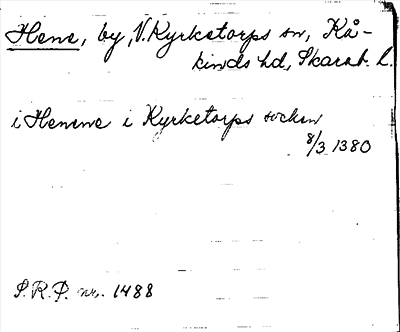 Hene, by, V. Kyrketorps sn, Kå-
kinds hd, Skarab. l.
i Henene i Kyrketorps sochen
8/3 1380
S.R.P. nr. 1488